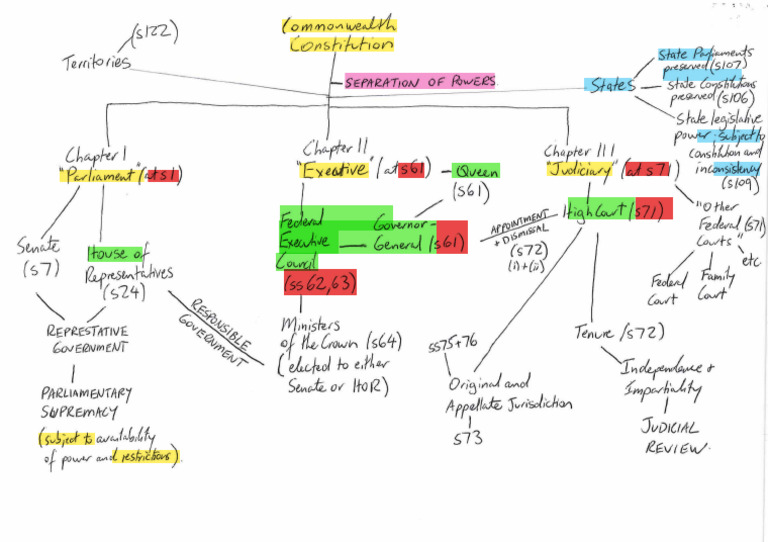 Commonwealth
Constitution
(s122)
Territories
SEPARATION OF POWERS.
States
State Parliaments
preserved (s107)
State Constitutions
preserved (s106)
State legislative
power, subject to
constitution and
inconsistency
(s109)
Chapter I
"Parliament" (at s1)
Chapter II
"Executive" (at s61)
Queen
(s61)
Chapter III
"Judiciary" (at s71)
Senate
(s7)
House of
Representatives
(s24)
REPRESTATIVE
GOVERNMENT
PARLIAMENTARY
SUPREMACY
(subject to availability
of power and restrictions).
RESPONSIBLE
GOVERNMENT
Federal
Executive
Council
(ss 62, 63)
Governor-
General (s61)
Ministers
of the Crown (s64)
(elected to either
Senate or HOR)
APPOINTMENT
+ DISMISSAL
(s72)
(i)+(ii)
High Court (s71)
"Other
Federal (s71)
Courts"
etc
Federal
Court
Family
Court
ss75+76
Original and
Appellate Jurisdiction
s73
Tenure (s72)
Independence +
Impartiality
JUDICIAL
REVIEW.